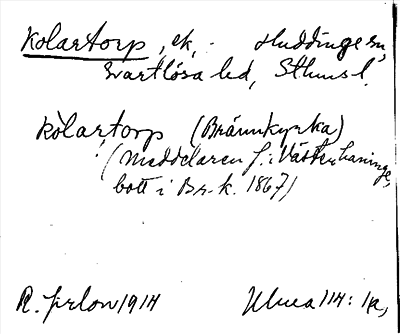 Kolartorp, ek, - Huddinge sn,
Svartlösa hd, Sthms l.
kòlartorp (Brännkyrka)
(Meddelaren f. i Västerhaninge,
bott i Br-k. 1867)
R. Jrlow 1914
114: 1a,